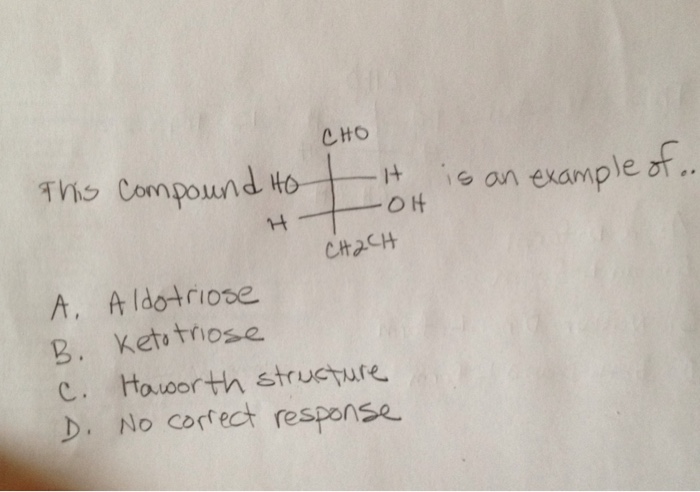 CHO
This Compound HO H is an example of..
H OH
CH2CH
A. Aldotriose
B. Ketotriose
C. Haworth structure
D. No correct response